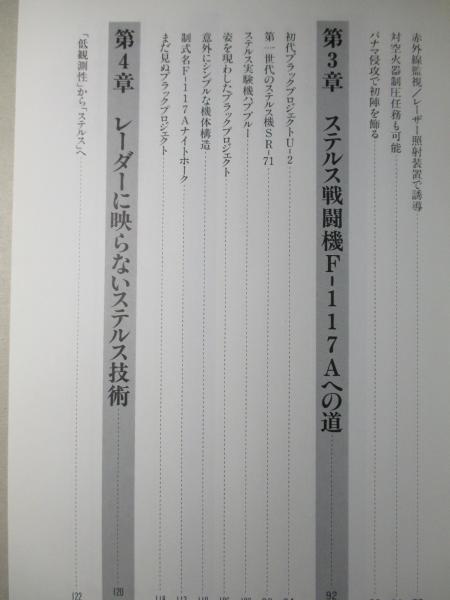 赤外線監視／レーザー照射装置で誘導
対空火器制圧任務も可能
パナマ侵攻で初陣を飾る
第3章 ステルス戦闘機F-117Aへの道 92
初代ブラックプロジェクトU-2
第一世代のステルス機SR-71
ステルス実験機ハブブルー
姿を現わしたブラックプロジェクト
意外にシンプルな機体構造
制式名F-117Aナイトホーク
まだ見ぬブラックプロジェクト
第4章 レーダーに映らないステルス技術 120
「低観測性」から「ステルス」へ 122